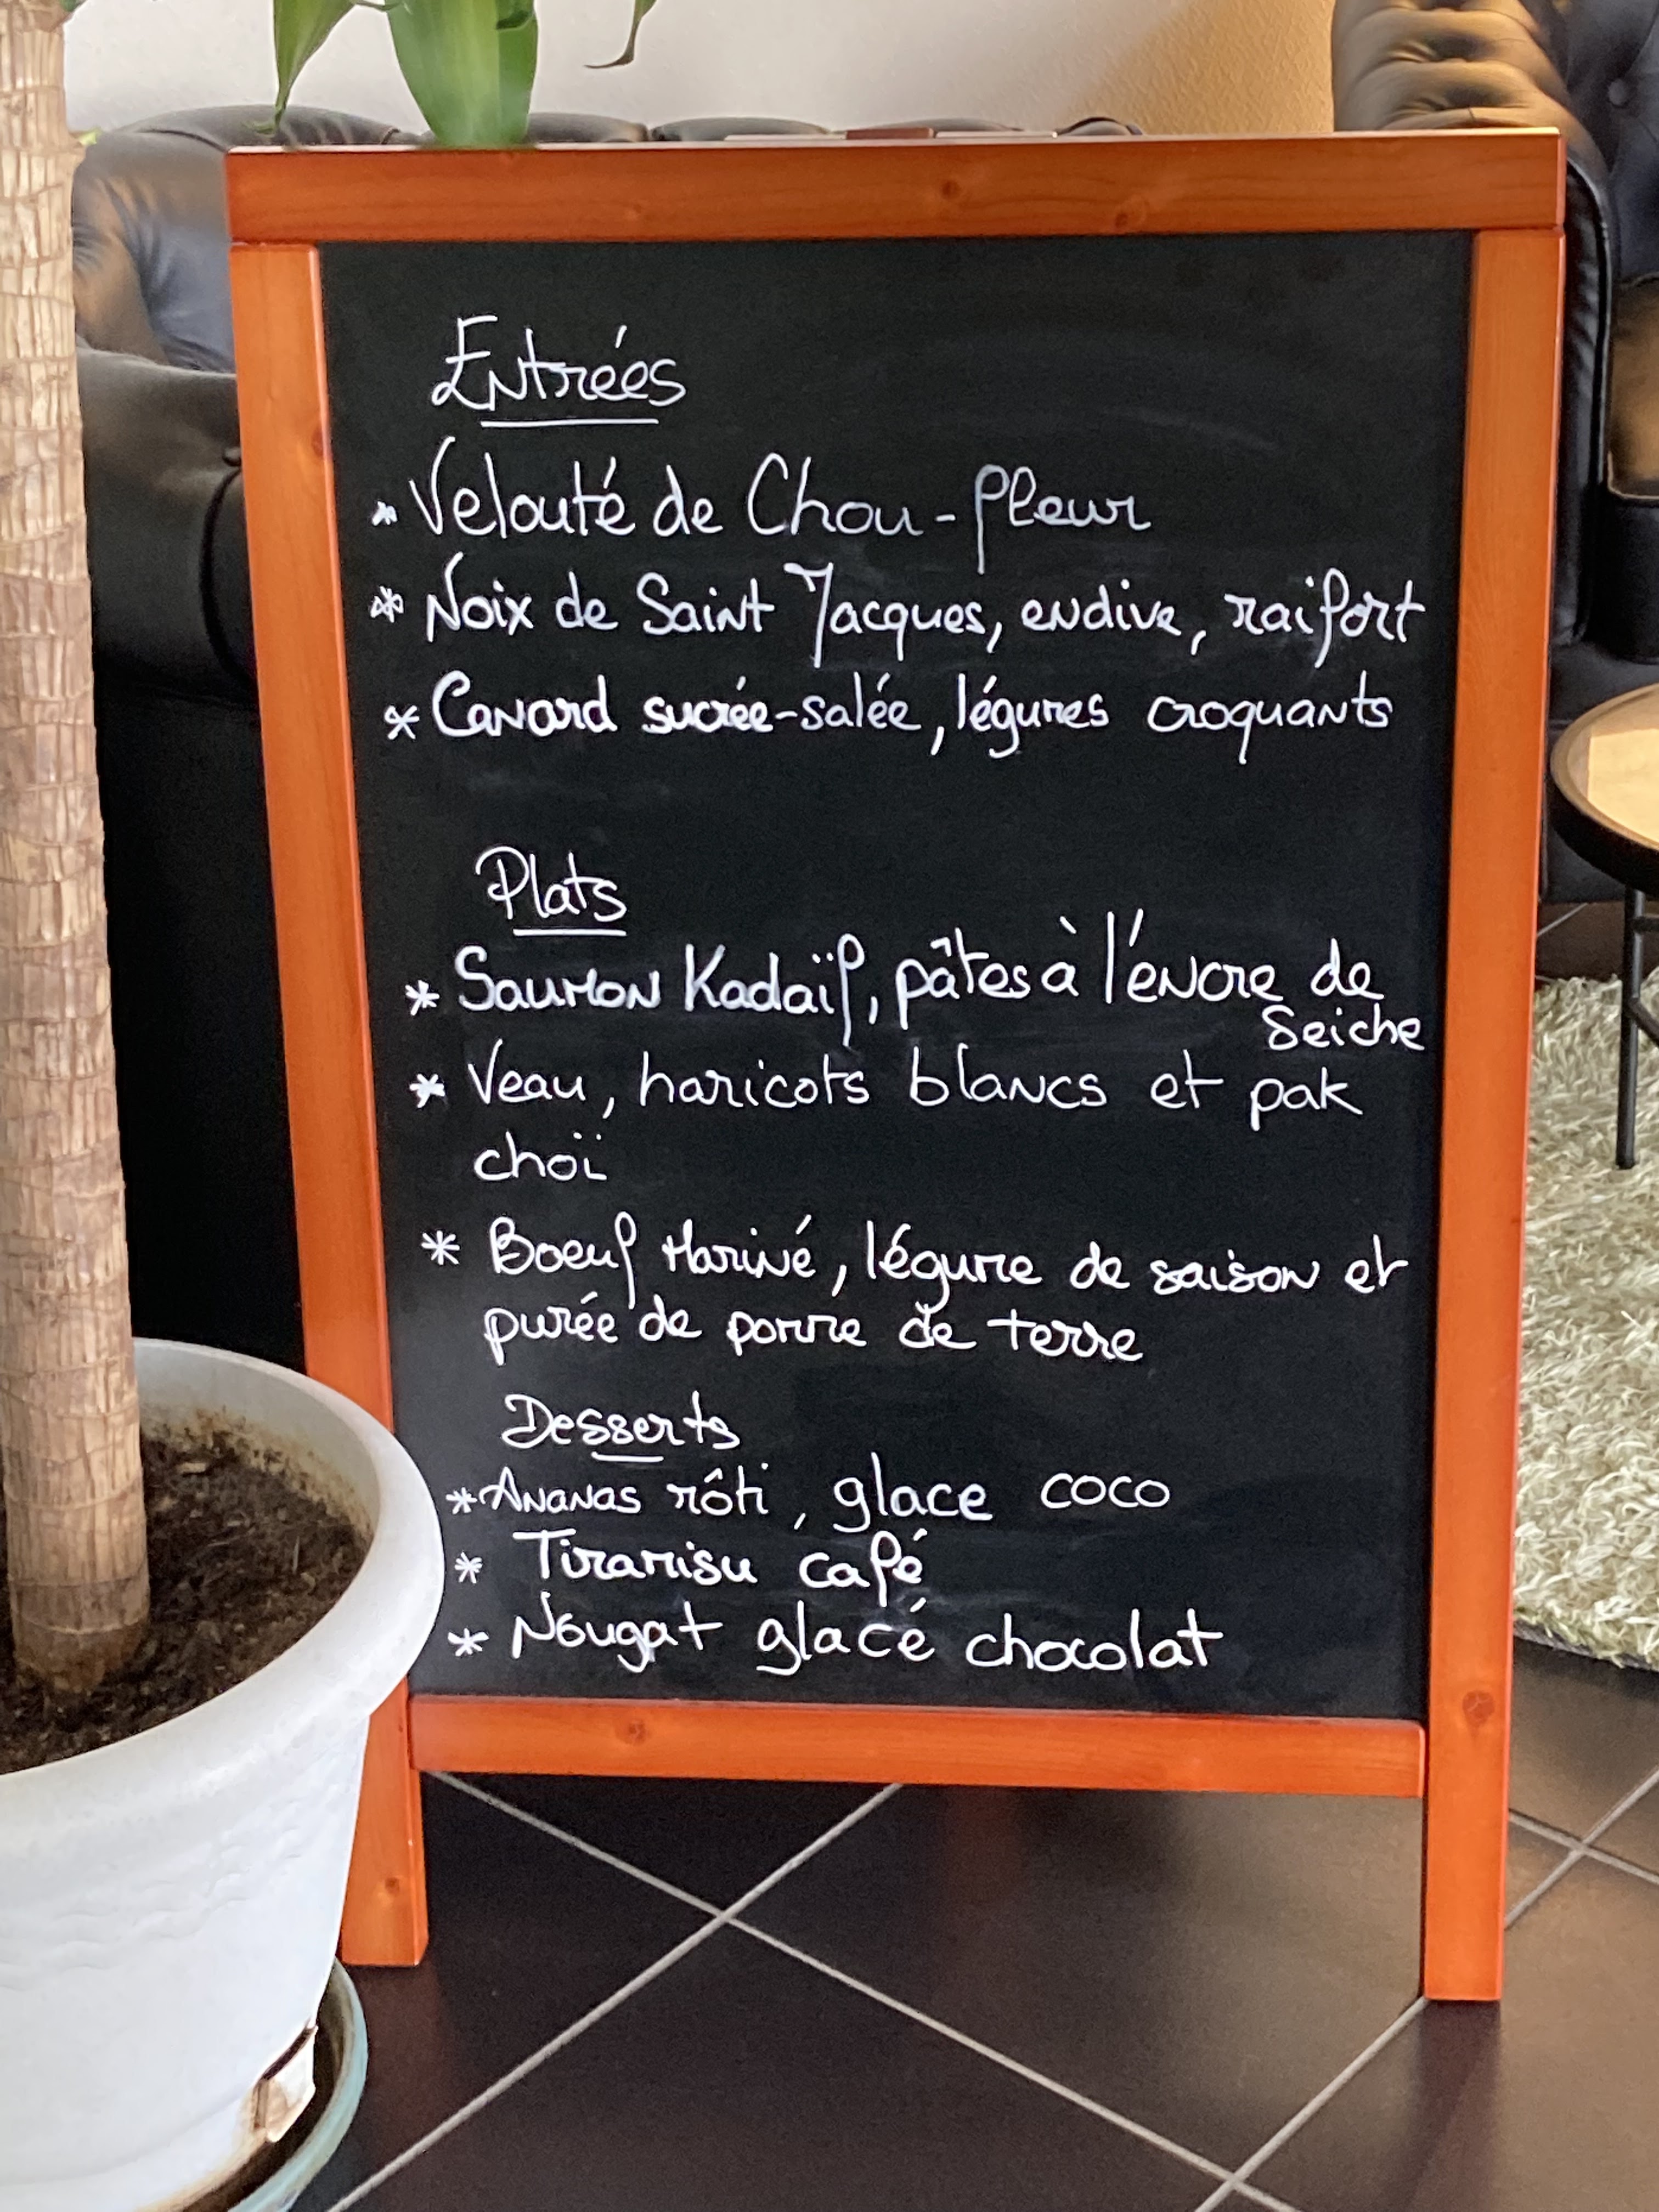 Entrées
* Velouté de Chou-fleur
* Noix de Saint Jacques, endive, raifort
* Canard sucrée-salée, légumes croquants
Plats
* Saumon Kadaïf, pâtes à l'encre de
Seiche
* Veau, haricots blancs et pak
choï
* Boeuf Mariné, légume de saison et
purée de pomme de terre
Desserts
* Ananas rôti, glace coco
* Tiramisu café
* Nougat glacé chocolat